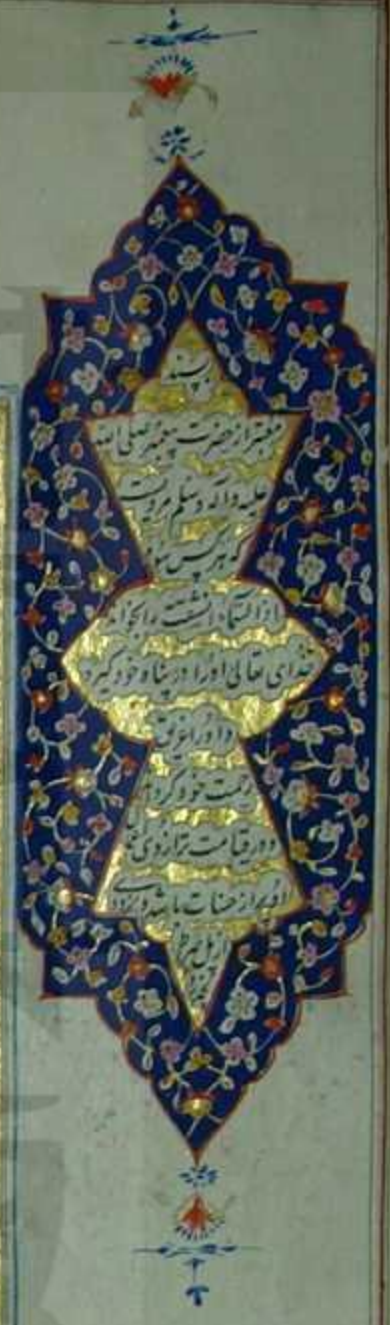 بسند
معتبر از حضرت پیغمبر صلی الله
علیه و آله و سلم مرویست
که هر کس سوره
اذا السماء انشقت را بخواند
خدای تعالی او را در پناه خود گیرد
و او را غریق
رحمت خود کرده
و در قیامت ترازوی
او پر از حسنات باشد و بزودی
از پل صراط